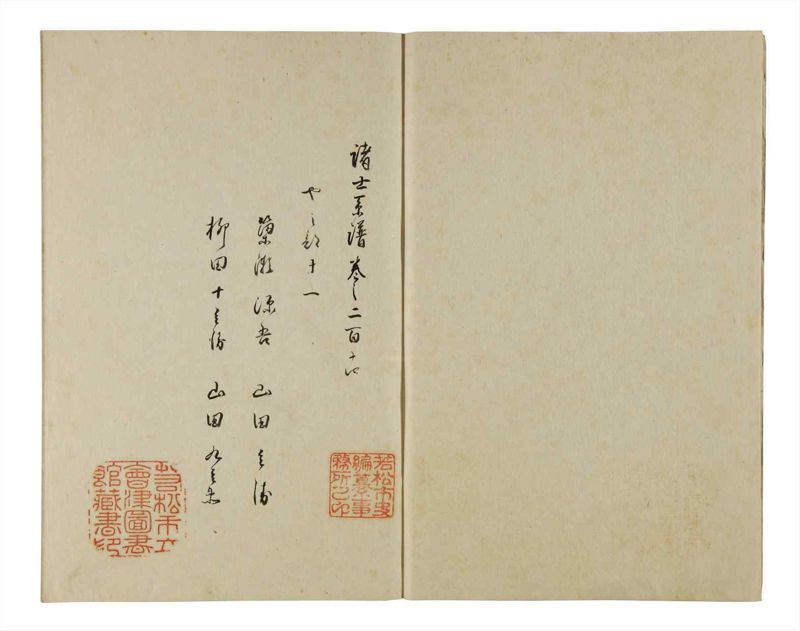 諸士系譜 巻之二百十四
や之部十一
簗瀬源吾 山田
柳田十 山田
若松市史
編纂事
務所之印
若松市立
會津圖書
館藏書印